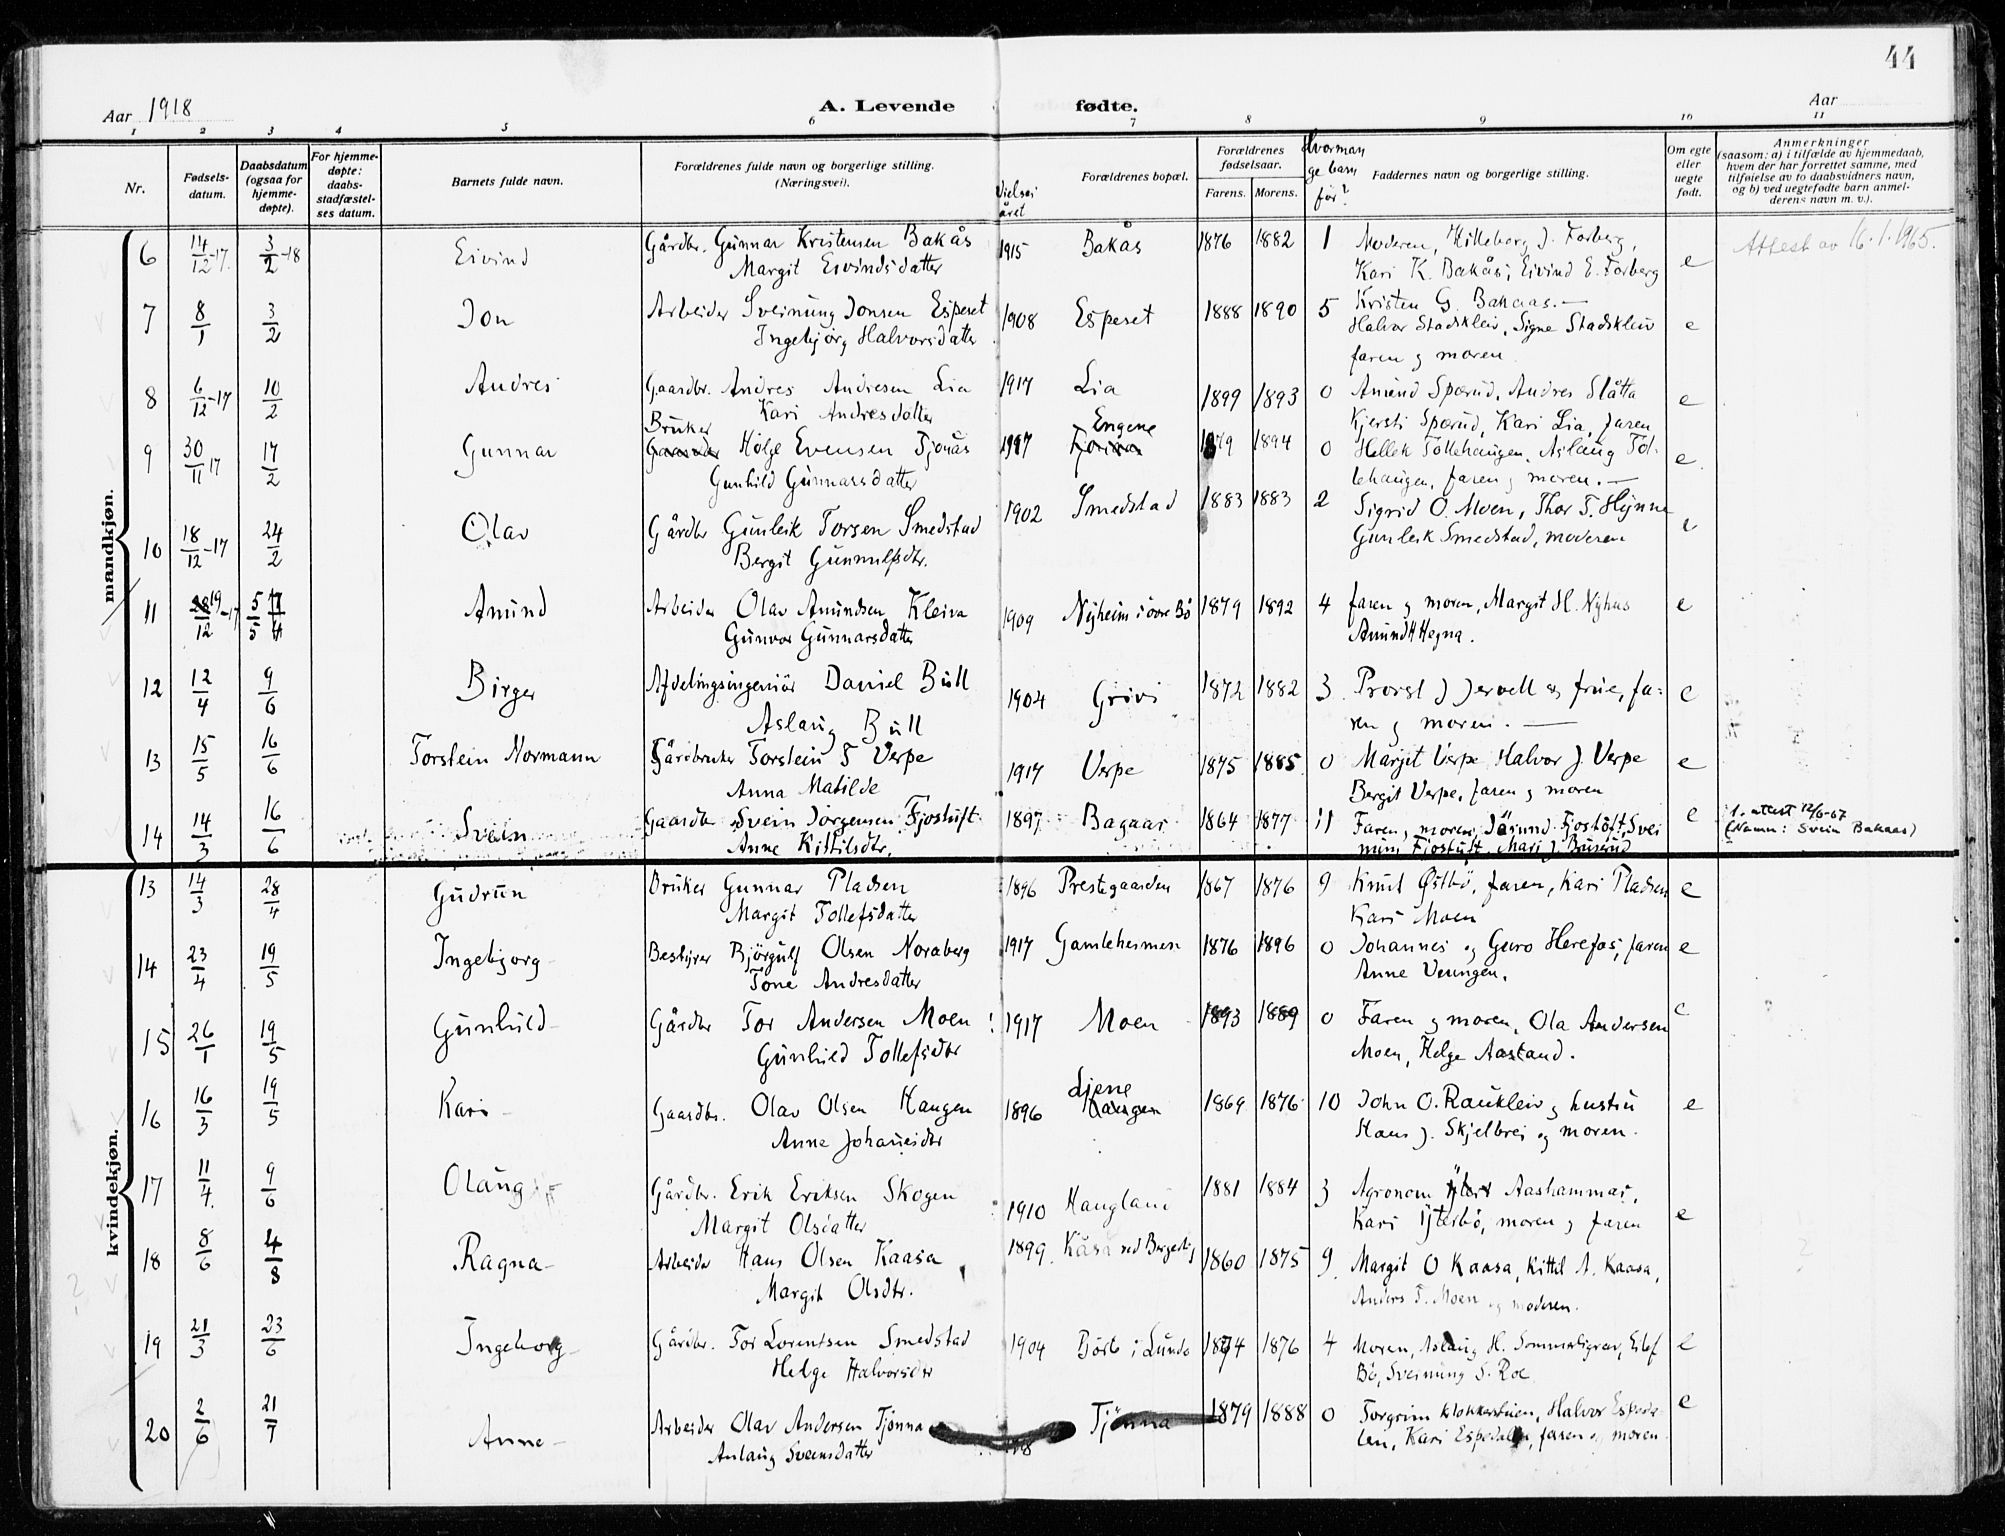 44
Aar 1918
A. Levende fødte.
Aar
1 2 3 4 5 6 7 8 9 10 11
Nr.
Fødsels-
datum.
Daabsdatum
(ogsaa for
hjemme-
døpte).
For hjemme-
døpte:
daabs-
stadfæstel-
ses datum.
Barnets fulde navn.
Forældrenes fulde navn og borgerlige stilling.
(Næringsvei).
Vielses
året
Forældrenes bopæl.
Forældrenes
fødselsaar.
Farens. Morens.
Hvorman
ge barn
før?
Faddernes navn og borgerlige stilling.
Om egte
eller
uegte
født.
Anmerkninger
(saasom: a) i tilfælde av hjemmedaab,
hvem der har forrettet samme, med
tilføielse av to daabsvidners navn,
og b) ved uegtefødte barn anmel-
derens navn m. v.).
mandkjøn.
6 14/12-17. 3/2-18 Eivind Gårdbr. Gunnar Kristensen Bakås 1915 Bakås 1876 1882 1 Moderen, Hilleborg J. Forberg, e Attest av 16.1.1965.
Margit Eivindsdatter Kari K. Bakås; Eivind E. Forberg
7 8/1 3/2 Jon Arbeider Sveinung Jonsen Esperet 1908 Esperet 1888 1890 5 Kristen G. Bakaas. — e
Ingebjørg Halvorsdatter Halvor Stadskleiv, Signe Stadskleiv
faren g moren.
8 6/12-17 10/2 Andres Gaardbr. Andres Andresen Lia 1917 Lia 1899 1893 0 Amund Spærud, Andres Slåtta e
Kari Andresdatter Kjersti Spærud, Kari Lia, faren
9 30/11 17 17/2 Gunnar Bruker Helge Evensen Tjønås 1917 Engene 1879 1894 0 Hellek Tollehaugen, Aslaug Tol- e.
Gunhild Gunnarsdatter lehaugen, faren g moren. —
10 18/12-17 24/2 Olav Gårdbr Gunleik Torsen Smedstad 1902 Smedstad 1883 1883 2 Sigrid O. Moen, Thor T. Hynne e
Bergit Gunnulfsdtr. Gunleik Smedstad, moderen
11 19/12-17 5/5 Amund Arbeider Olav Amundsen Kleiva 1909 Nyheim i øvre Bø 1879 1892 4 faren g moren, Margit H. Nyhus e
Gunvor Gunnarsdatter Amund H Hegna.
12 12/4 9/6 Birger Afdelingsingeniør Daniel Bull 1904 Grivi 1872 1882 3 Provst J Jervell og frue, fa- e
Aslaug Bull ren g moren. —
13 15/5 16/6 Torstein Normann Gårdbruker Torstein T Verpe 1917 Verpe 1875 1885 0 Margit Verpe Halvor J. Verpe e
Anna Matilde Bergit Verpe, faren g moren
14 14/3 16/6 Svein Gaardbr Svein Jørgensen Fjostuft 1897 Bagaas 1864 1877 11 Faren g moren, Jørund Fjostuft, Svei e 1. attest 12/6-67
Anne Kittilsdtr. nung Fjostuft, Mari J. (Namn: Svein Bakaas)
kvindekjøn.
13 14/3 28/4 Gudrun Bruker Gunnar Pladsen 1896 Prestegaarden 1867 1876 9 Knut Østbø, faren, Kari Pladsen e
Margit Tollefsdatter Kari Moen
14 23/4 19/5 Ingebjorg Bestyrer Bjørgulf Olsen Noraberg 1917 Gamleheimen 1876 1896 0 Johannes og Guro Herefos, faren e
Tone Andresdatter Anne Verungen.
15 26/1 19/5 Gunhild Gårdbr Tor Andersen Moen 1917 Moen 1893 1889 0 Faren g moren, Ola Andersen e
Gunhild Tollefsdtr Moen, Helge Aastand.
16 16/3 19/5 Kari Gaardbr. Olav Olsen Haugen 1896 Liene Haugen 1869 1876 10 John O. Raukleiv g hustru e
Anne Johanesdtr Hans J. Skjelbrei og moren.
17 11/4. 9/6 Olaug Gårdbr. Erik Eriksen Skogen 1910 Haugland 1881 1884 3 Agronom Aashammar, e
Margit Olsdatter Kari Ytterbø, moren g faren
18 8/6 4/8 Ragna Arbeider Hans Olsen Kaasa 1899. Kåsa ved Bergerlig 1860 1875 9 Margit O Kaasa, Kittil A. Kaasa,
Margit Olsdtr. Anders T. Moen og moderen.
19 21/3 23/6 Ingeborg Gårdbr. Tor Lorentsen Smedstad 1904 Børte i Lunde 1874 1876 4 Moren, Aslaug H. Sommerligrav, Eilef e
Helge Halvorsdtr Bø, Sveinung S. Roe
20 2/6 21/7 Anne Arbeider Olav Andersen Tjønna Tjønna 1879 1888 0 Torgrim Klokkerstuen, Halvor Espeda- e
Anlaug Sveensdatter len, Kari Espedalen, faren og moren